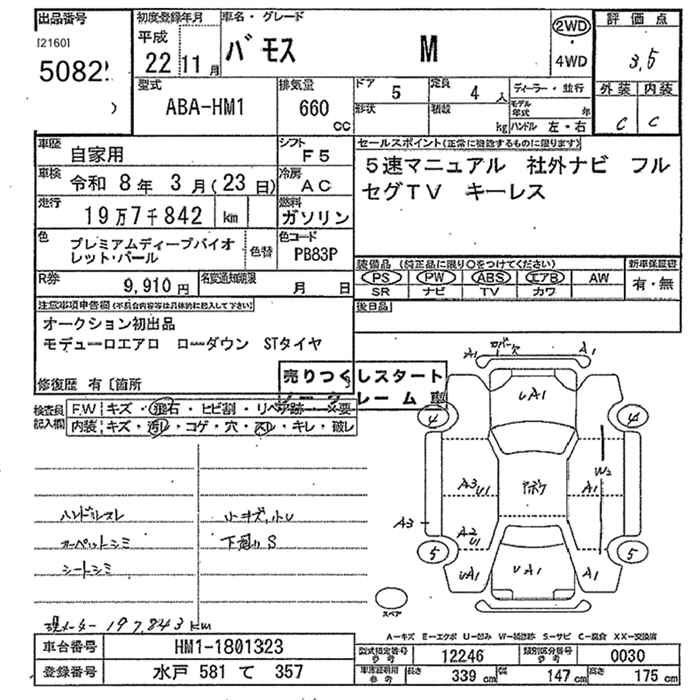 出品番号 初度登録年月 車名・グレード 2WD 評価点
121601 平成 バモス M ・ 3.5
5082 22 11月 4WD
型式 排気量 ドア 5 定員 4人 ディーラー・並行 外装 内装
ABA-HM1 660 形状 積載 モデル年式 年 C C
CC kg ハンドル 左・右
車歴 自家用 シフト F5 セールスポイント(正常に機能するものに限ります)
車検 令和 8年 3月(23日) 冷房 AC 5速マニュアル 社外ナビ フル
走行 19万7千842 km 燃料 ガソリン セグTV キーレス
色 プレミアムディープバイオ 色替 色コード
レット・パール PB83P 装備品 (純正品に限り○をつけてください) 新車保証書
R券 9,910円 名変通知期限 月 日 PS PW ABS エアB AW 有・無
SR ナビ TV カワ
注意事項申告欄(不具合内容等は具体的に記入して下さい) 後日品
オークション初出品
モデューロエアロ ローダウン STタイヤ
売りつくしスタート
修復歴 有〔箇所
検査員 F.W キズ・飛石・ヒビ割・リペア跡・×要
記入欄 内装 キズ・汚レ・コゲ・穴・スレ・キレ・破レ
A1 A1
UA1
4 4
W2
A3 U1 A1
ハンドルスレ 小キズ,小U A3
カーペットシミ 下廻りS A2 U1
シートシミ 5 5
UA1 UA1 A1
スペア
現メーター 197,843km
A-キズ E-エクボ U-凹み W-補修跡 S-サビ C-腐食 XX-交換済
車台番号 HM1-1801323 型式指定番号 参考 12246 類別区分番号 参考 0030
登録番号 水戸 581 て 357 車庫証明用 参考 長さ 339cm 幅 147cm 高さ 175cm